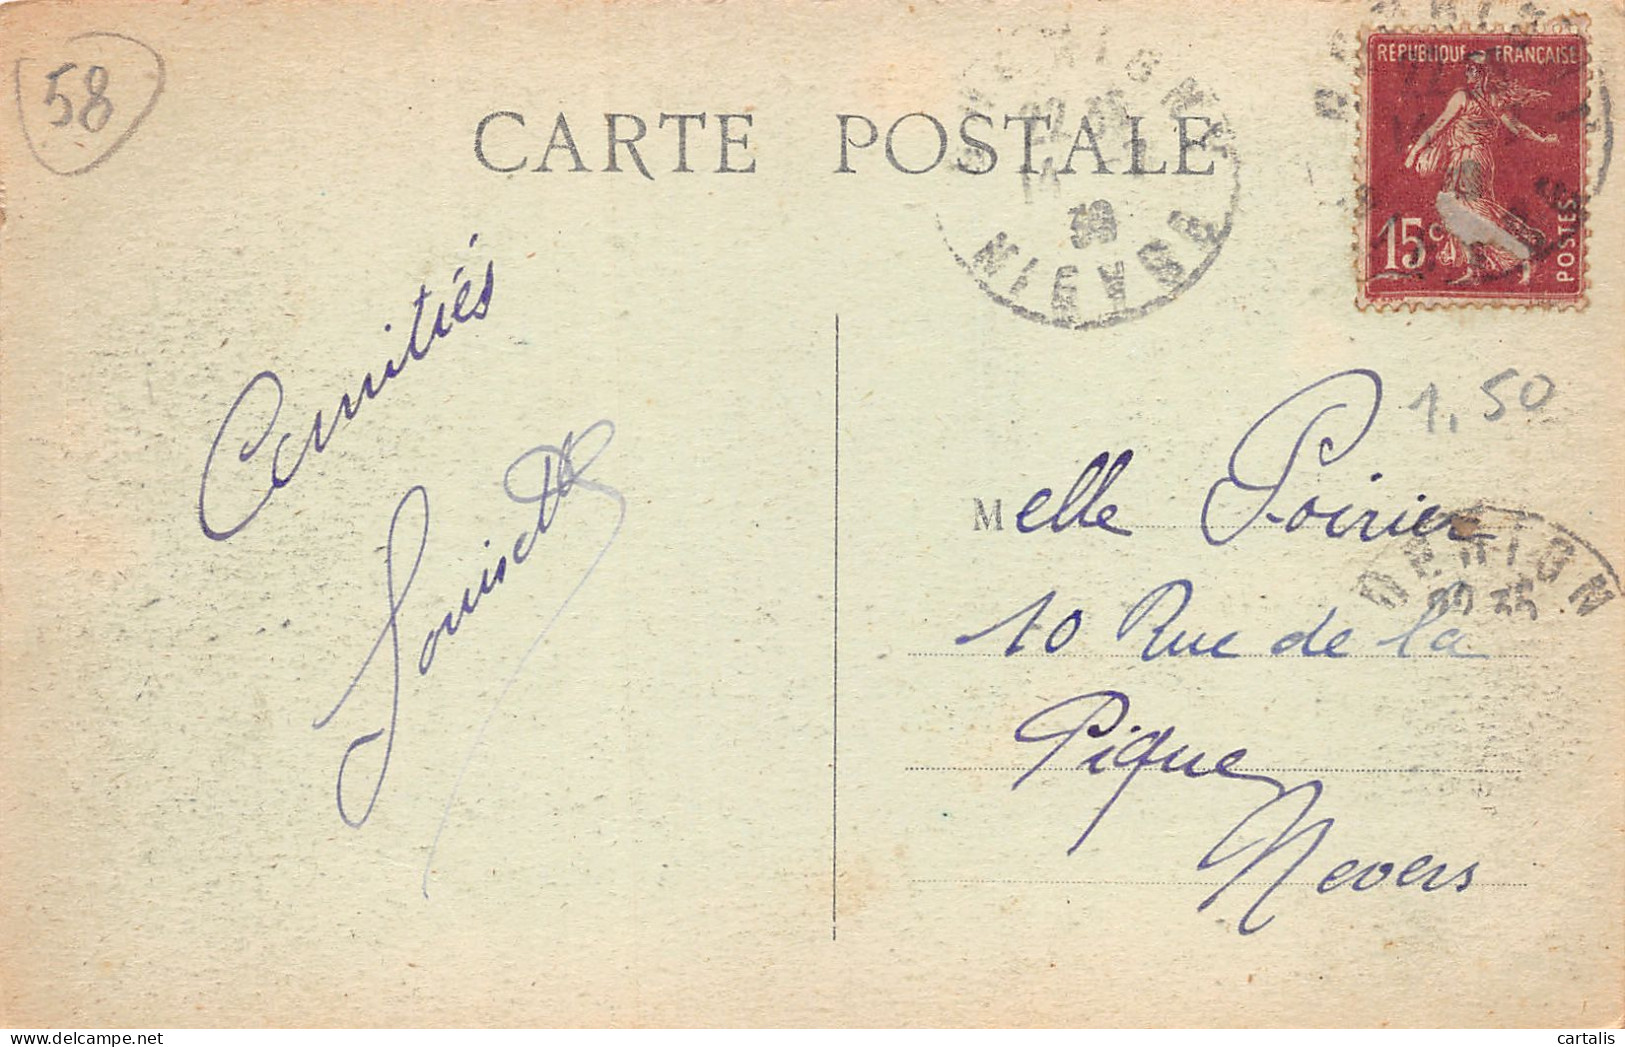 58
CARTE POSTALE
REPUBLIQUE FRANÇAISE
15c
POSTES
NIEVRE
Amitiés
Louisette
1,50
Melle Poirier
10 Rue de la
Pique
Nevers
cartalis